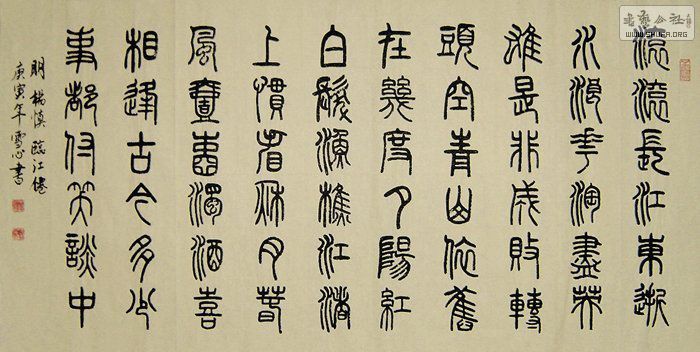 滾滾長江東逝
水浪花淘盡英
雄是非成敗轉
頭空青山依舊
在幾度夕陽紅
白髮漁樵江渚
上慣看秋月春
風壹壺濁酒喜
相逢古今多少
事都付笑談中
明 楊慎 臨江僊
庚寅年 雪心書
書藝公社
WWW.SHUFA.ORG